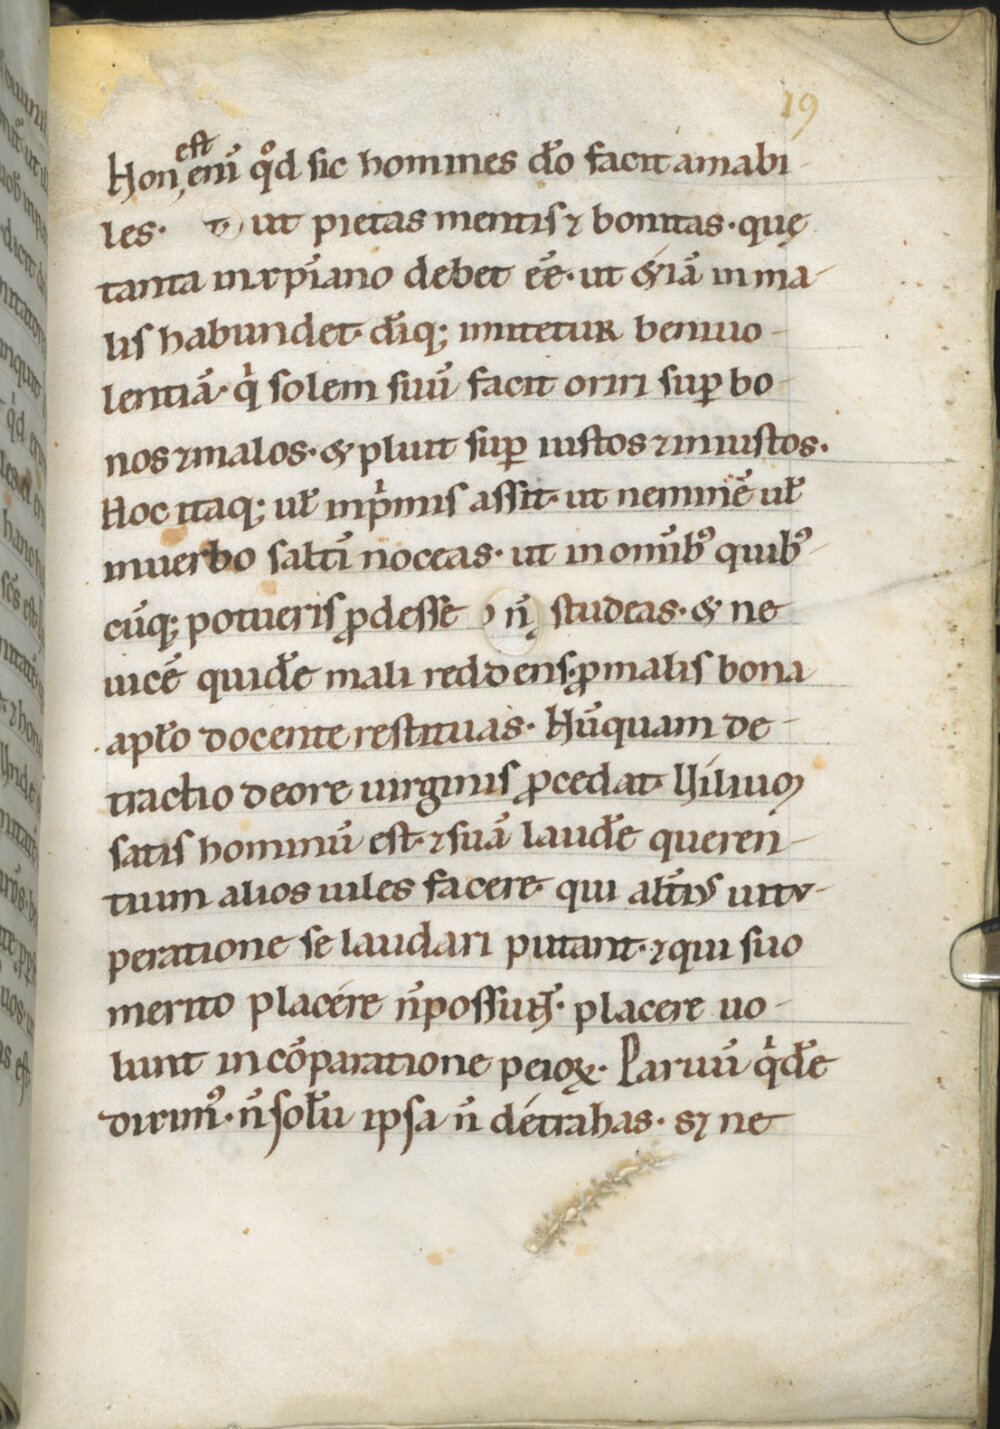 19
Non est eni̅ qͦd sic homines d̅o facit amabi-
les. ut pietas mentis ⁊ bonitas. quę
tanta in xp̅iano debet ee̅. ut &iā in ma-
lis habundet. diq̅; imitetur beniuo-
lentiā. qͥ solem suū facit oriri suꝑ bo-
nos ⁊ malos. & pluit suꝑ iustos ⁊ iniustos.
Hoc itaq; uł inpͥmis assit. ut neminē uł
in uerbo saltī noceas. ut in omīb᾿ quib᾿-
cūq; potueris ꝓdesse n̄ studeas. & ne
uicē quidē mali reddens. ꝓ malis bona
apło docente restituas. Nūquam de-
tractio de ore uirginis ꝓcedat. Nł̅
satis hominū est. ⁊ suā laudē queren-
tium alios uiles facere. qui alt̄i᾿ uitu-
peratione se laudari putant. ⁊ qui suo
merito placére n̄ possunt. placere uo-
lunt in cōparatione peioꝝ. Paruū qͥdē
dixim᾿. n̄ solū ipsa n̄ détrahas. s⁊ ne